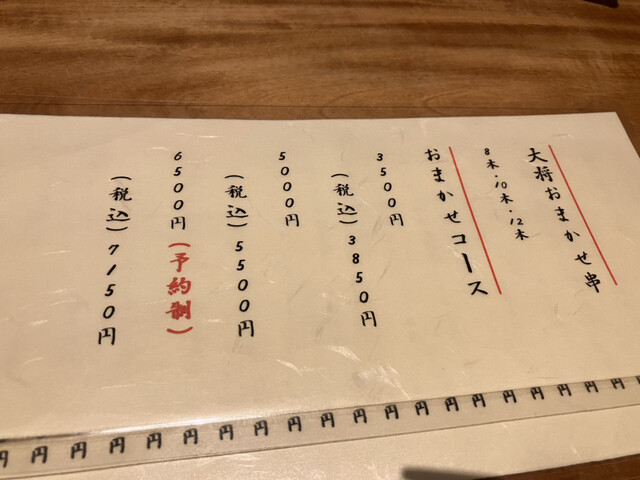 大将おまかせ串
8本・10本・12本
おまかせコース
3500円
(税込)3850円
5000円
(税込)5500円
6500円(予約制)
(税込)7150円
円 円 円 円 円 円 円 円 円 円 円 円 円 円 円 円 円 円